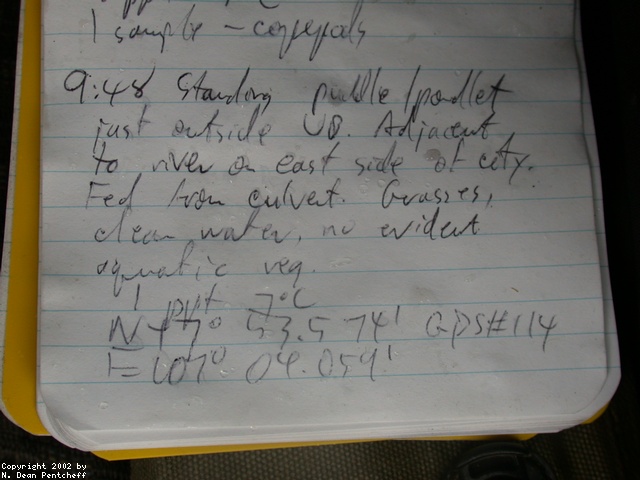 1 sample - copepods
9:48 Standing puddle/pondlet
just outside UB. Adjacent
to river on east side of city.
Fed from culvert. Grasses,
clean water, no evident
aquatic veg.
1 ppt 7°C
N 47° 53.574' GPS#114
E 107° 04.059'
Copyright 2002 by
N. Dean Pentcheff